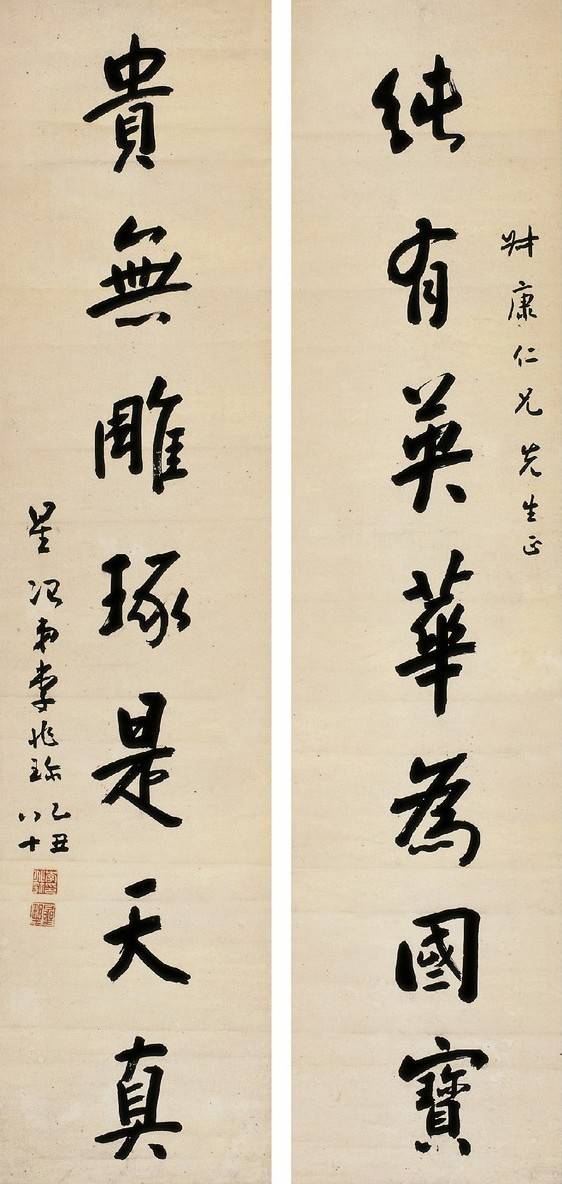 尗康仁兄先生正
純有英華為國寶
貴無雕琢是天真
星冶弟李兆珍
乙丑
八十